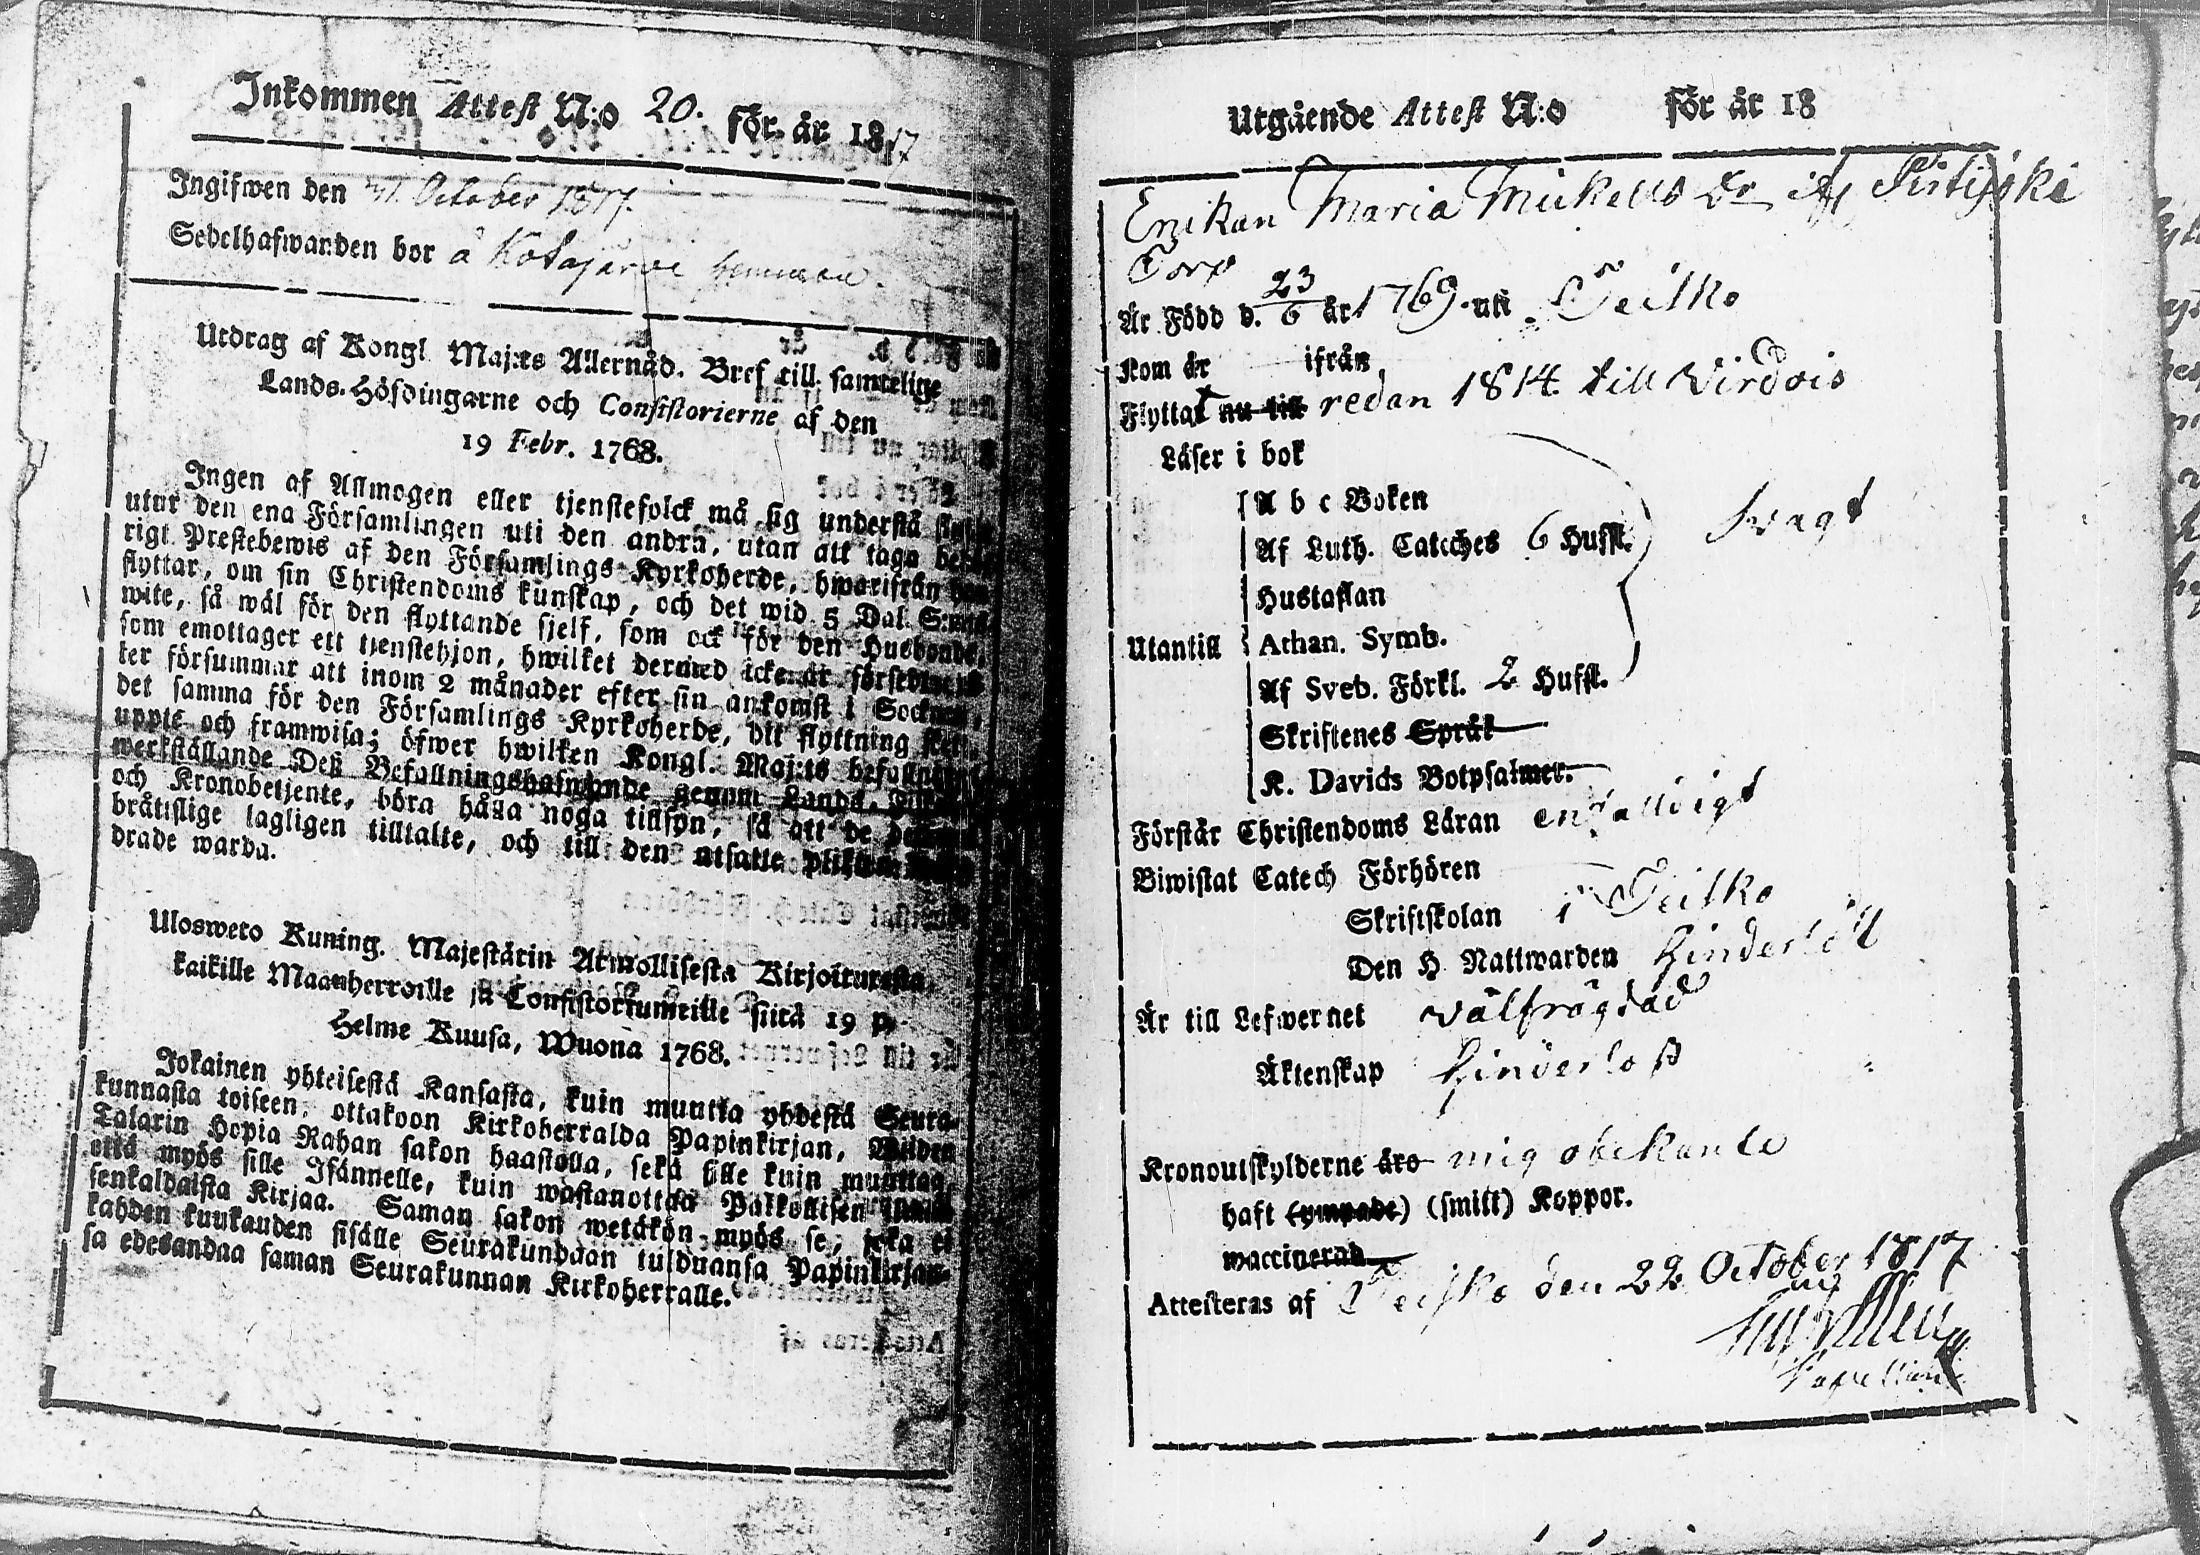 Inkommen Attest N:o 20. för år 1817
Ingifwen den 31. October 1817.
Sedelhafwanden bor å Kotajärvi hemman.
Utdrag af Kongl. Maj:ts Allernåd. Bref till samtelige
Lands-Höfdingarne och Consistorierne af den
19 Febr. 1768.
Ingen af Allmogen eller tjenstefolck må sig understå flytta
utur den ena Församlingen uti den andra, utan att taga behö-
rigt Prestebewis af den Församlings Kyrkoherde, hwarifrån han
flyttar, om sin Christendoms kunskap, och det wid 5 Dal. S:mts
wite, så wäl för den flyttande sjelf, som ock för den Husbonde,
som emottager ett tjenstehjon, hwilket dermed icke är försedt
ler försummar att inom 2 månader efter sin ankomst i Socknen,
det samma för den Församlings Kyrkoherde, dit flyttning sker,
uppte och framwisa; öfwer hwilken Kongl. Maj:ts befallning
werkställande Deß Befallningshafwande genom Lands-
och Kronobetjente, böra hålla noga tillsyn, så att de
bråttslige lagligen tilltalte, och till den utsatte plikten
drade warda.
Ulosweto Kuning. Majestätin Armollisesta Kirjoituresta
kaikille Maanherroille ja Consistoriumeille siitä 19 p.
Helme Kuusa, Wuona 1768.
Jokainen yhteisestä Kansasta, kuin muutta yhdestä Seura-
kunnasta toiseen, ottakoon Kirkoherralda Papinkirjan, Wiiden
Talarin Hopia Rahan sakon haastolla, sekä sille kuin muuttaa,
että myös sille Isännelle, kuin wastanottaa Palkollisen
senkaldaista Kirjaa. Saman sakon wetäkön myös se, joka ei
kahden kuukauden sisälle Seurakundaan tulduansa Papinkirjan-
sa edesandaa saman Seurakunnan Kirkoherralle.
Utgående Attest N:o för år 18
Enkan Maria Mickels Dr. af Pirtijoki
Torp
Är Född d. 23/6 år 1769. uti Teisko
Kom år ifrån
Flyttat nu till redan 1814 till Virdois
Läser i bok
A b c Boken
Af Luth. Cateches 6 Hufst. Svagt
Hustaflan
Utantill Athan. Symb.
Af Sveb. Förkl. 2 Hufst.
Skriftenes Språk
K. Davids Botpsalmer.
Förstår Christendoms Läran enfalldigt
Biwistat Catech Förhören
Skriftskolan i Teisko
Den H. Nattwarden hinderlöst
Är till Lefwernet wälfrägdad
Äktenskap hinderlöß
Kronoutskylderne äro mig obekante
haft (ympade) (smitt) Koppor.
waccinerad
Attesteras af Teisko den 22 October 1817
Capellan